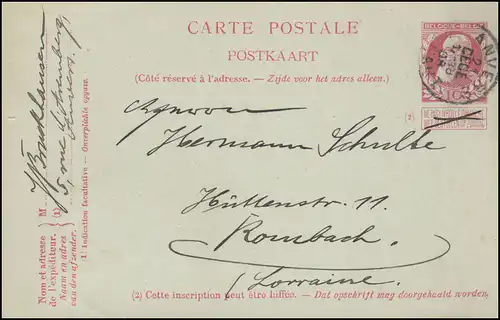 CARTE POSTALE
POSTKAART
(Côté réservé à l'adresse. — Zijde voor het adres alleen.)
BELGIQUE BELGIË
10
ANVERS
(2)
Hermann Schulte
Hüttenstr. 11.
Rombach.
(Lorraine.
(2) Cette inscription peut être biffée. — Dat opschrift mag doorgehaald worden.
Nom et adresse
de l'expéditeur.
Naam en adres
van den afzender.
M
(1)
5, rue
Anvers.
(1) Indication facultative — Onverplichte opgave.